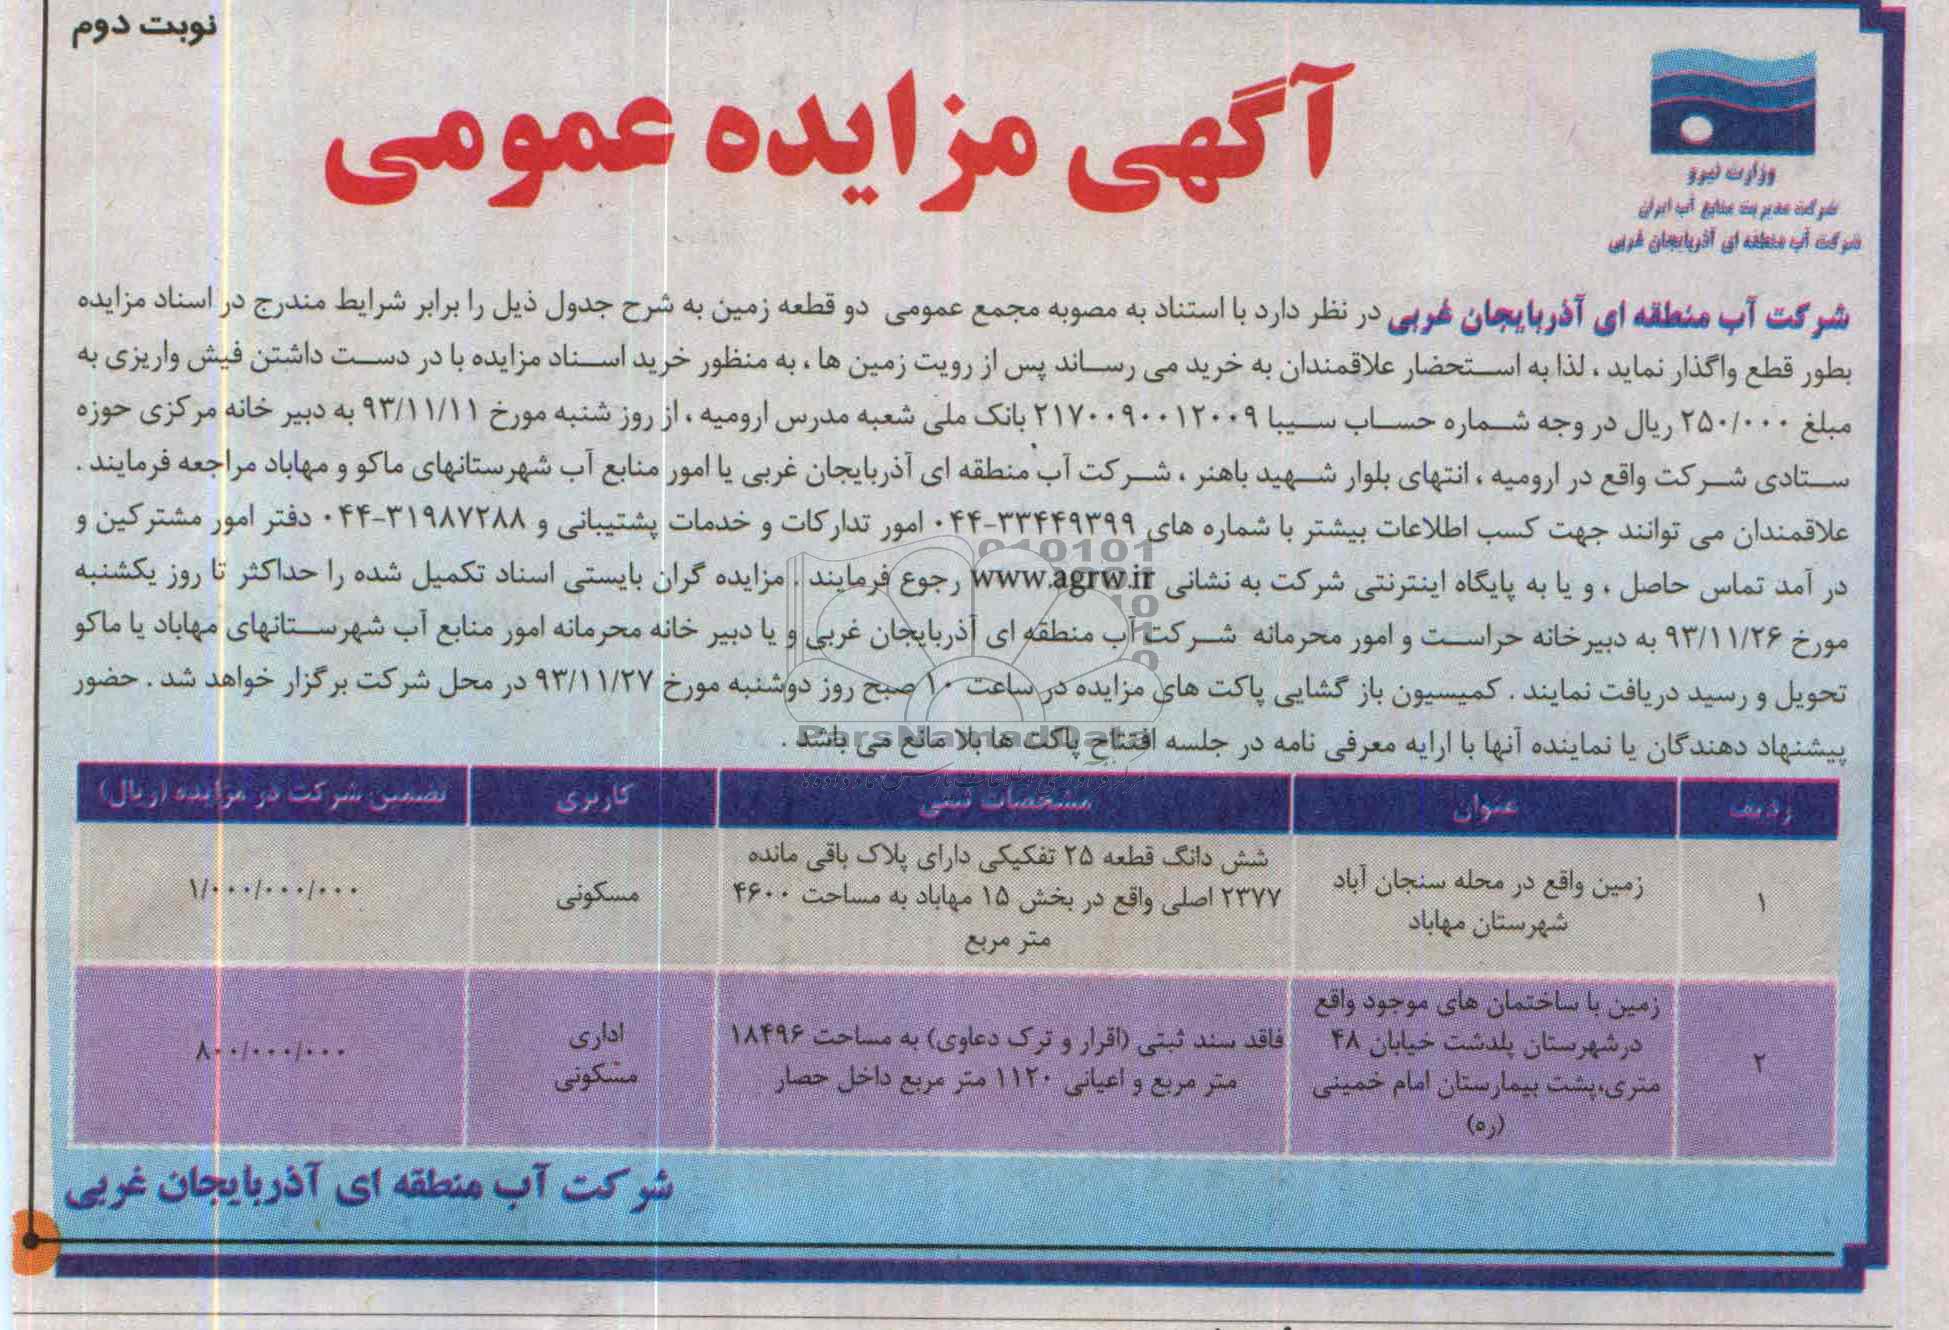 نوبت دوم
آگهی مزایده عمومی
وزارت نیرو
شرکت مدیریت منابع آب ایران
شرکت آب منطقه ای آذربایجان غربی
شرکت آب منطقه ای آذربایجان غربی در نظر دارد با استناد به مصوبه مجمع عمومی دو قطعه زمین به شرح جدول ذیل را برابر شرایط مندرج در اسناد مزایده
بطور قطع واگذار نماید ، لذا به استحضار علاقمندان به خرید می رساند پس از رویت زمین ها ، به منظور خرید اسناد مزایده با در دست داشتن فیش واریزی به
مبلغ ۲۵۰/۰۰۰ ریال در وجه شماره حساب سیبا ۲۱۷۰۰۹۰۰۱۲۰۰۹ بانک ملی شعبه مدرس ارومیه ، از روز شنبه مورخ ۹۳/۱۱/۱۱ به دبیر خانه مرکزی حوزه
ستادی شرکت واقع در ارومیه ، انتهای بلوار شهید باهنر ، شرکت آب منطقه ای آذربایجان غربی یا امور منابع آب شهرستانهای ماکو و مهاباد مراجعه فرمایند .
علاقمندان می توانند جهت کسب اطلاعات بیشتر با شماره های ۳۳۴۴۹۳۹۹-۰۴۴ امور تدارکات و خدمات پشتیبانی و ۳۱۹۸۷۲۸۸-۰۴۴ دفتر امور مشترکین و
در آمد تماس حاصل ، و یا به پایگاه اینترنتی شرکت به نشانی www.agrw.ir رجوع فرمایند . مزایده گران بایستی اسناد تکمیل شده را حداکثر تا روز یکشنبه
مورخ ۹۳/۱۱/۲۶ به دبیرخانه حراست و امور محرمانه شرکت آب منطقه ای آذربایجان غربی و یا دبیر خانه محرمانه امور منابع آب شهرستانهای مهاباد یا ماکو
تحویل و رسید دریافت نمایند . کمیسیون باز گشایی پاکت های مزایده در ساعت ۱۰ صبح روز دوشنبه مورخ ۹۳/۱۱/۲۷ در محل شرکت برگزار خواهد شد . حضور
پیشنهاد دهندگان یا نماینده آنها با ارایه معرفی نامه در جلسه افتتاح پاکت ها بلا مانع می باشد .
ParsNamadData
ردیف عنوان مشخصات ثبتی کاربری تضمین شرکت در مزایده (ریال)
۱ زمین واقع در محله سنجان آباد شهرستان مهاباد شش دانگ قطعه ۲۵ تفکیکی دارای پلاک باقی مانده ۲۳۷۷ اصلی واقع در بخش ۱۵ مهاباد به مساحت ۴۶۰۰ متر مربع مسکونی ۱/۰۰۰/۰۰۰/۰۰۰
۲ زمین با ساختمان های موجود واقع درشهرستان پلدشت خیابان ۴۸ متری،پشت بیمارستان امام خمینی (ره) فاقد سند ثبتی (اقرار و ترک دعاوی) به مساحت ۱۸۴۹۶ متر مربع و اعیانی ۱۱۲۰ متر مربع داخل حصار اداری مسکونی ۸۰۰/۰۰۰/۰۰۰
شرکت آب منطقه ای آذربایجان غربی